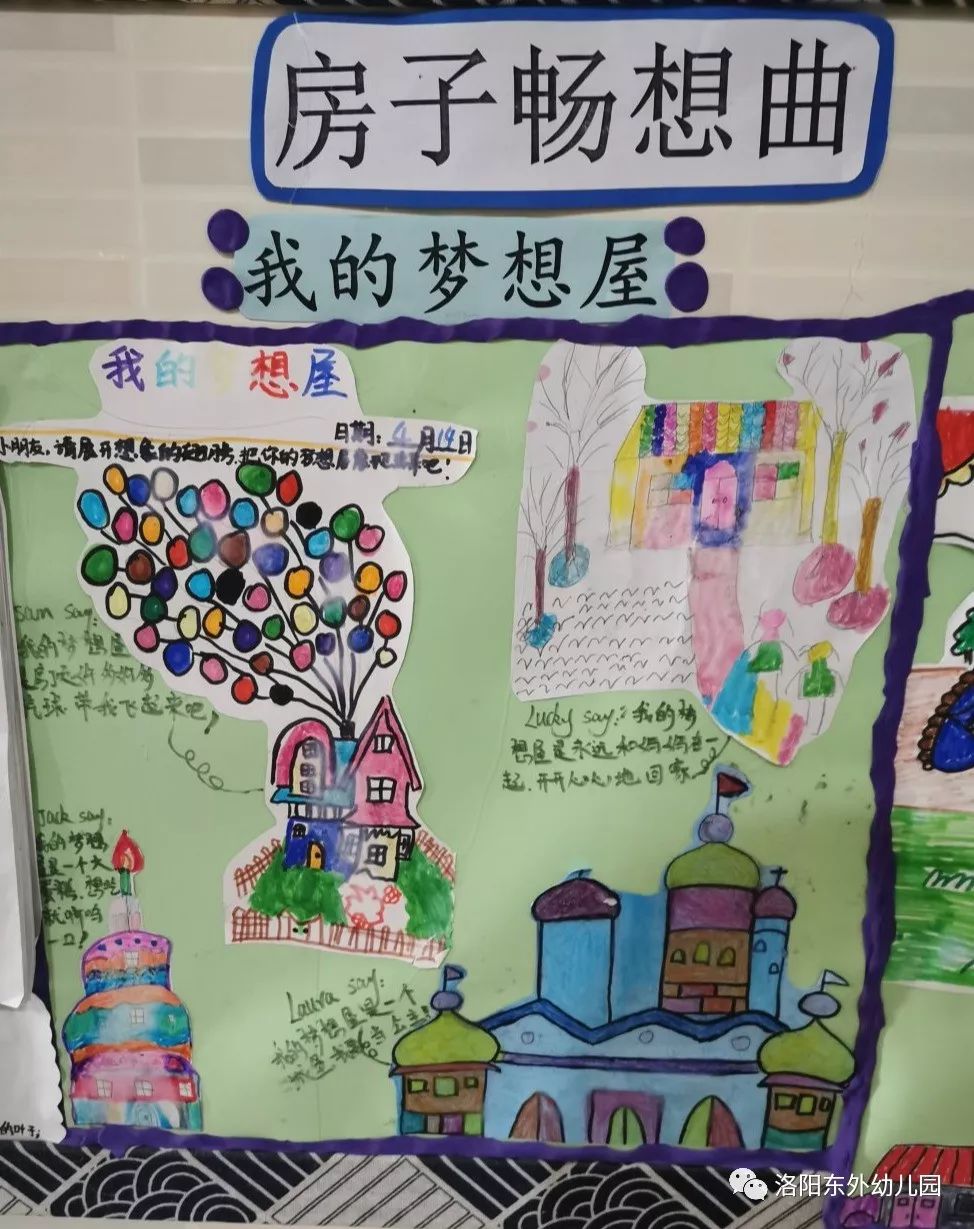 房子畅想曲
我的梦想屋
我的梦想屋
日期：4月19日
小朋友，请展开想象的翅膀，把你的梦想屋展现出来吧！
Sam say：
我的梦想屋
气球带我飞起来吧！
Lucky say：我的梦
想屋是永远和妈妈在一
起，开开心心地回家
Jack say：
我的梦想
屋是一个大
蛋糕，想吃
就啊呜
一口！
Laura say：
我的梦想屋是一个
洛阳东外幼儿园